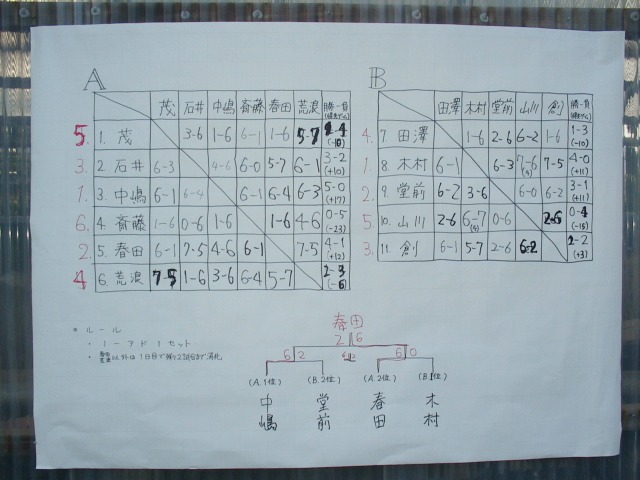 A
茂 石井 中嶋 斉藤 春田 荒浪 勝-負
5. 1. 茂 3-6 1-6 6-1 1-6 5-7 1-4 (-10)
3. 2. 石井 6-3 4-6 6-0 5-7 6-1 3-2 (+10)
1. 3. 中嶋 6-1 6-4 6-1 6-4 6-3 5-0 (+17)
6. 4. 斉藤 1-6 0-6 1-6 1-6 4-6 0-5 (-23)
2. 5. 春田 6-1 7-5 4-6 6-1 7-5 4-1 (+12)
4. 6. 荒浪 7-5 1-6 3-6 6-4 5-7 2-3 (-6)
B
田澤 木村 堂前 山川 創 勝-負
4. 7. 田澤 1-6 2-6 6-2 1-6 1-3 (-10)
1. 8. 木村 6-1 6-3 7-6 7-5 4-0 (+11)
2. 9. 堂前 6-2 3-6 6-0 6-2 3-1 (+11)
5. 10. 山川 2-6 6-7 0-6 2-6 0-4 (-15)
3. 11. 創 6-1 5-7 2-6 6-2 2-2 (+3)
*ルール
・ノーアド1セット
春田
2 6
6 2 6 0
(A.1位) (B.2位) (A.2位) (B.1位)
中嶋 堂前 春田 木村